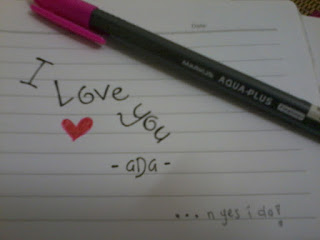 Date
I
Love
You
MARKUS AQUA-PLUS
- aDa -
... n yes i do!